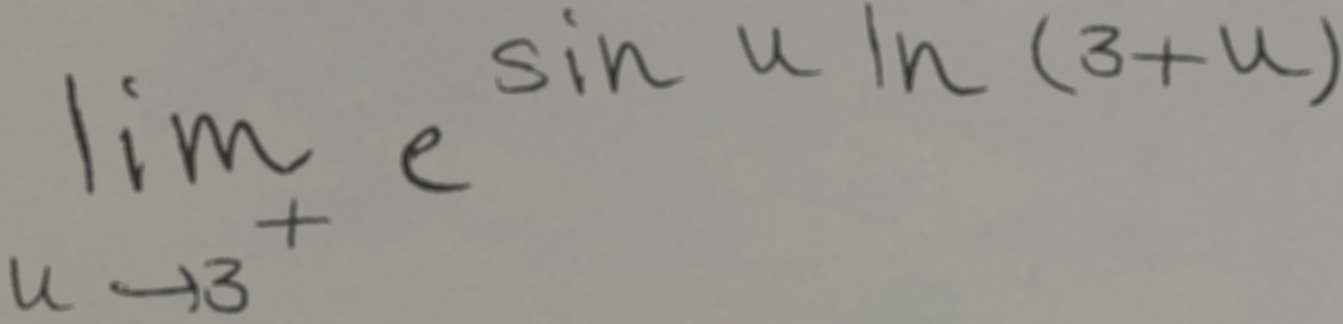 lim u→3⁺ e^{sin u ln (3+u)}